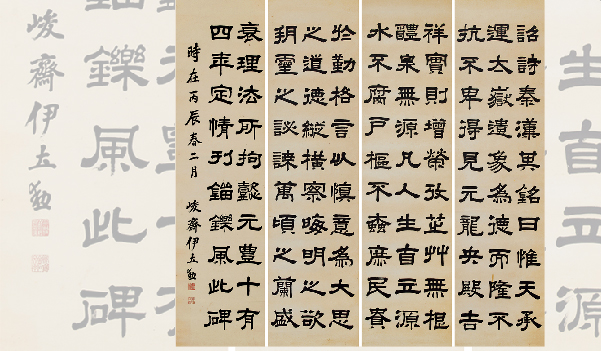 詔詩秦漢其銘曰惟天承
運太嶽遺象為德而隆不
抗不卑得見元龍央殹告
祥實則增榮孜芝艸無根
醴泉無源凡人生自立源
水不腐戶樞不蠹庶民資
於勤格言以慎意為大思
之道德縱橫察晦明之欲
朔靈之談諫萬頃之蘭盛
衰理法所拘懿元豊十有
四年定情刊錙鑠風此碑
時在丙辰春二月 峻齋伊立勳
生自立源
鑠風此碑
峻齋伊立勳